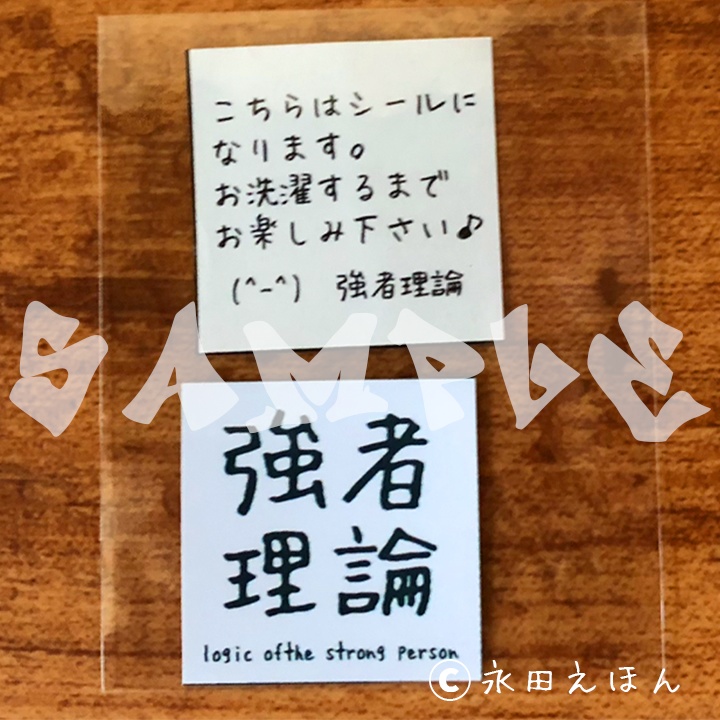 こちらはシールに
なります。
お洗濯するまで
お楽しみ下さい♪
(^-^) 強者理論
SAMPLE
強者
理論
logic ofthe strong person
©永田えほん